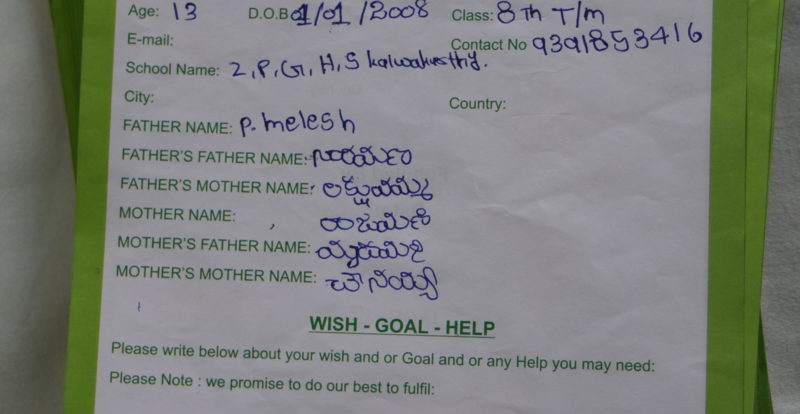 Age: 13 D.O.B 01/01/2008 Class: 8th T/m
E-mail: Contact No 9391853416
School Name: Z.P.G.H.S kalwakurthy.
City: Country:
FATHER NAME: P. melesh
FATHER'S FATHER NAME:
FATHER'S MOTHER NAME: లక్ష్మమ్మ
MOTHER NAME: రాజమణి
MOTHER'S FATHER NAME:
MOTHER'S MOTHER NAME:
WISH - GOAL - HELP
Please write below about your wish and or Goal and or any Help you may need:
Please Note : we promise to do our best to fulfil: